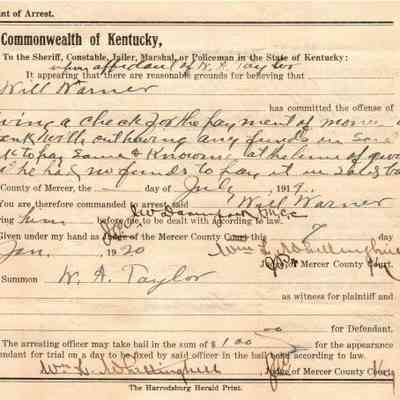 nt of Arrest.
Commonwealth of Kentucky,
To the Sheriff, Constable, Jailer, Marshal, or Policeman in the State of Kentucky:
upon affidavit of W. A. Taylor
It appearing that there are reasonable grounds for believing that
Will Warner
has committed the offense of
ving a check for the payment of money
ank without having any funds in said
k to pay same & knowing at the time of giv
he had no funds to pay it in said ba
County of Mercer, the day of July 191
You are therefore commanded to arrest said Will Warner
ring him before
me to be dealt with according to law.
Given under my hand as Judge of the Mercer County Court this 7 day
Jan. 1920
Judge of Mercer County Court.
Summon W. A. Taylor
as witness for plaintiff and
for Defendant.
The arresting officer may take bail in the sum of $ 100 for the appearance
endant for trial on a day to be fixed by said officer in the bail bond according to law.
Judge of Mercer County Court
The Harrodsburg Herald Print.